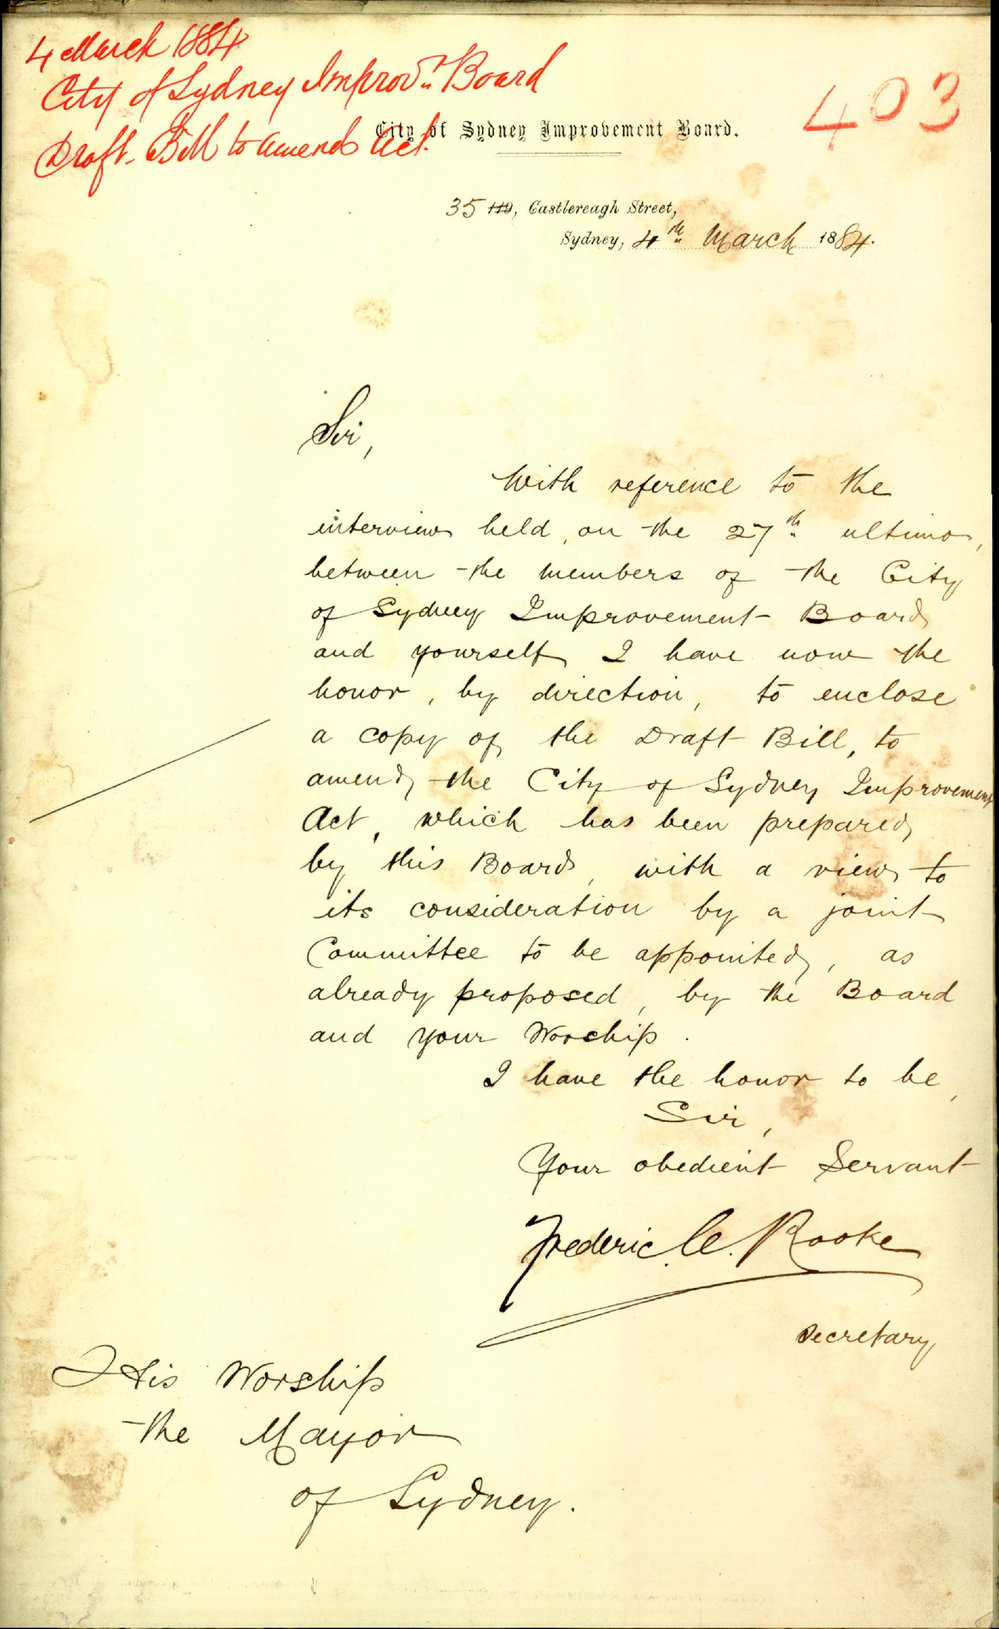 4 March 1884
City of Sydney Improv.t Board
Draft Bill to amend Act.
403
City of Sydney Improvement Board.
35 119, Castlereagh Street,
Sydney, 4th March 1884.
Sir,
With reference to the
interview held, on the 27th ultimo,
between the members of the City
of Sydney Improvement Board
and yourself I have now the
honor, by direction, to enclose
a copy of the Draft Bill, to
amend the City of Sydney Improvement
Act, which has been prepared
by this Board, with a view to
its consideration by a joint
Committee to be appointed, as
already proposed, by the Board
and your Worship.
I have the honor to be,
Sir,
Your obedient Servant
Frederic C. Rooke
Secretary
His Worship
the Mayor
of Sydney.